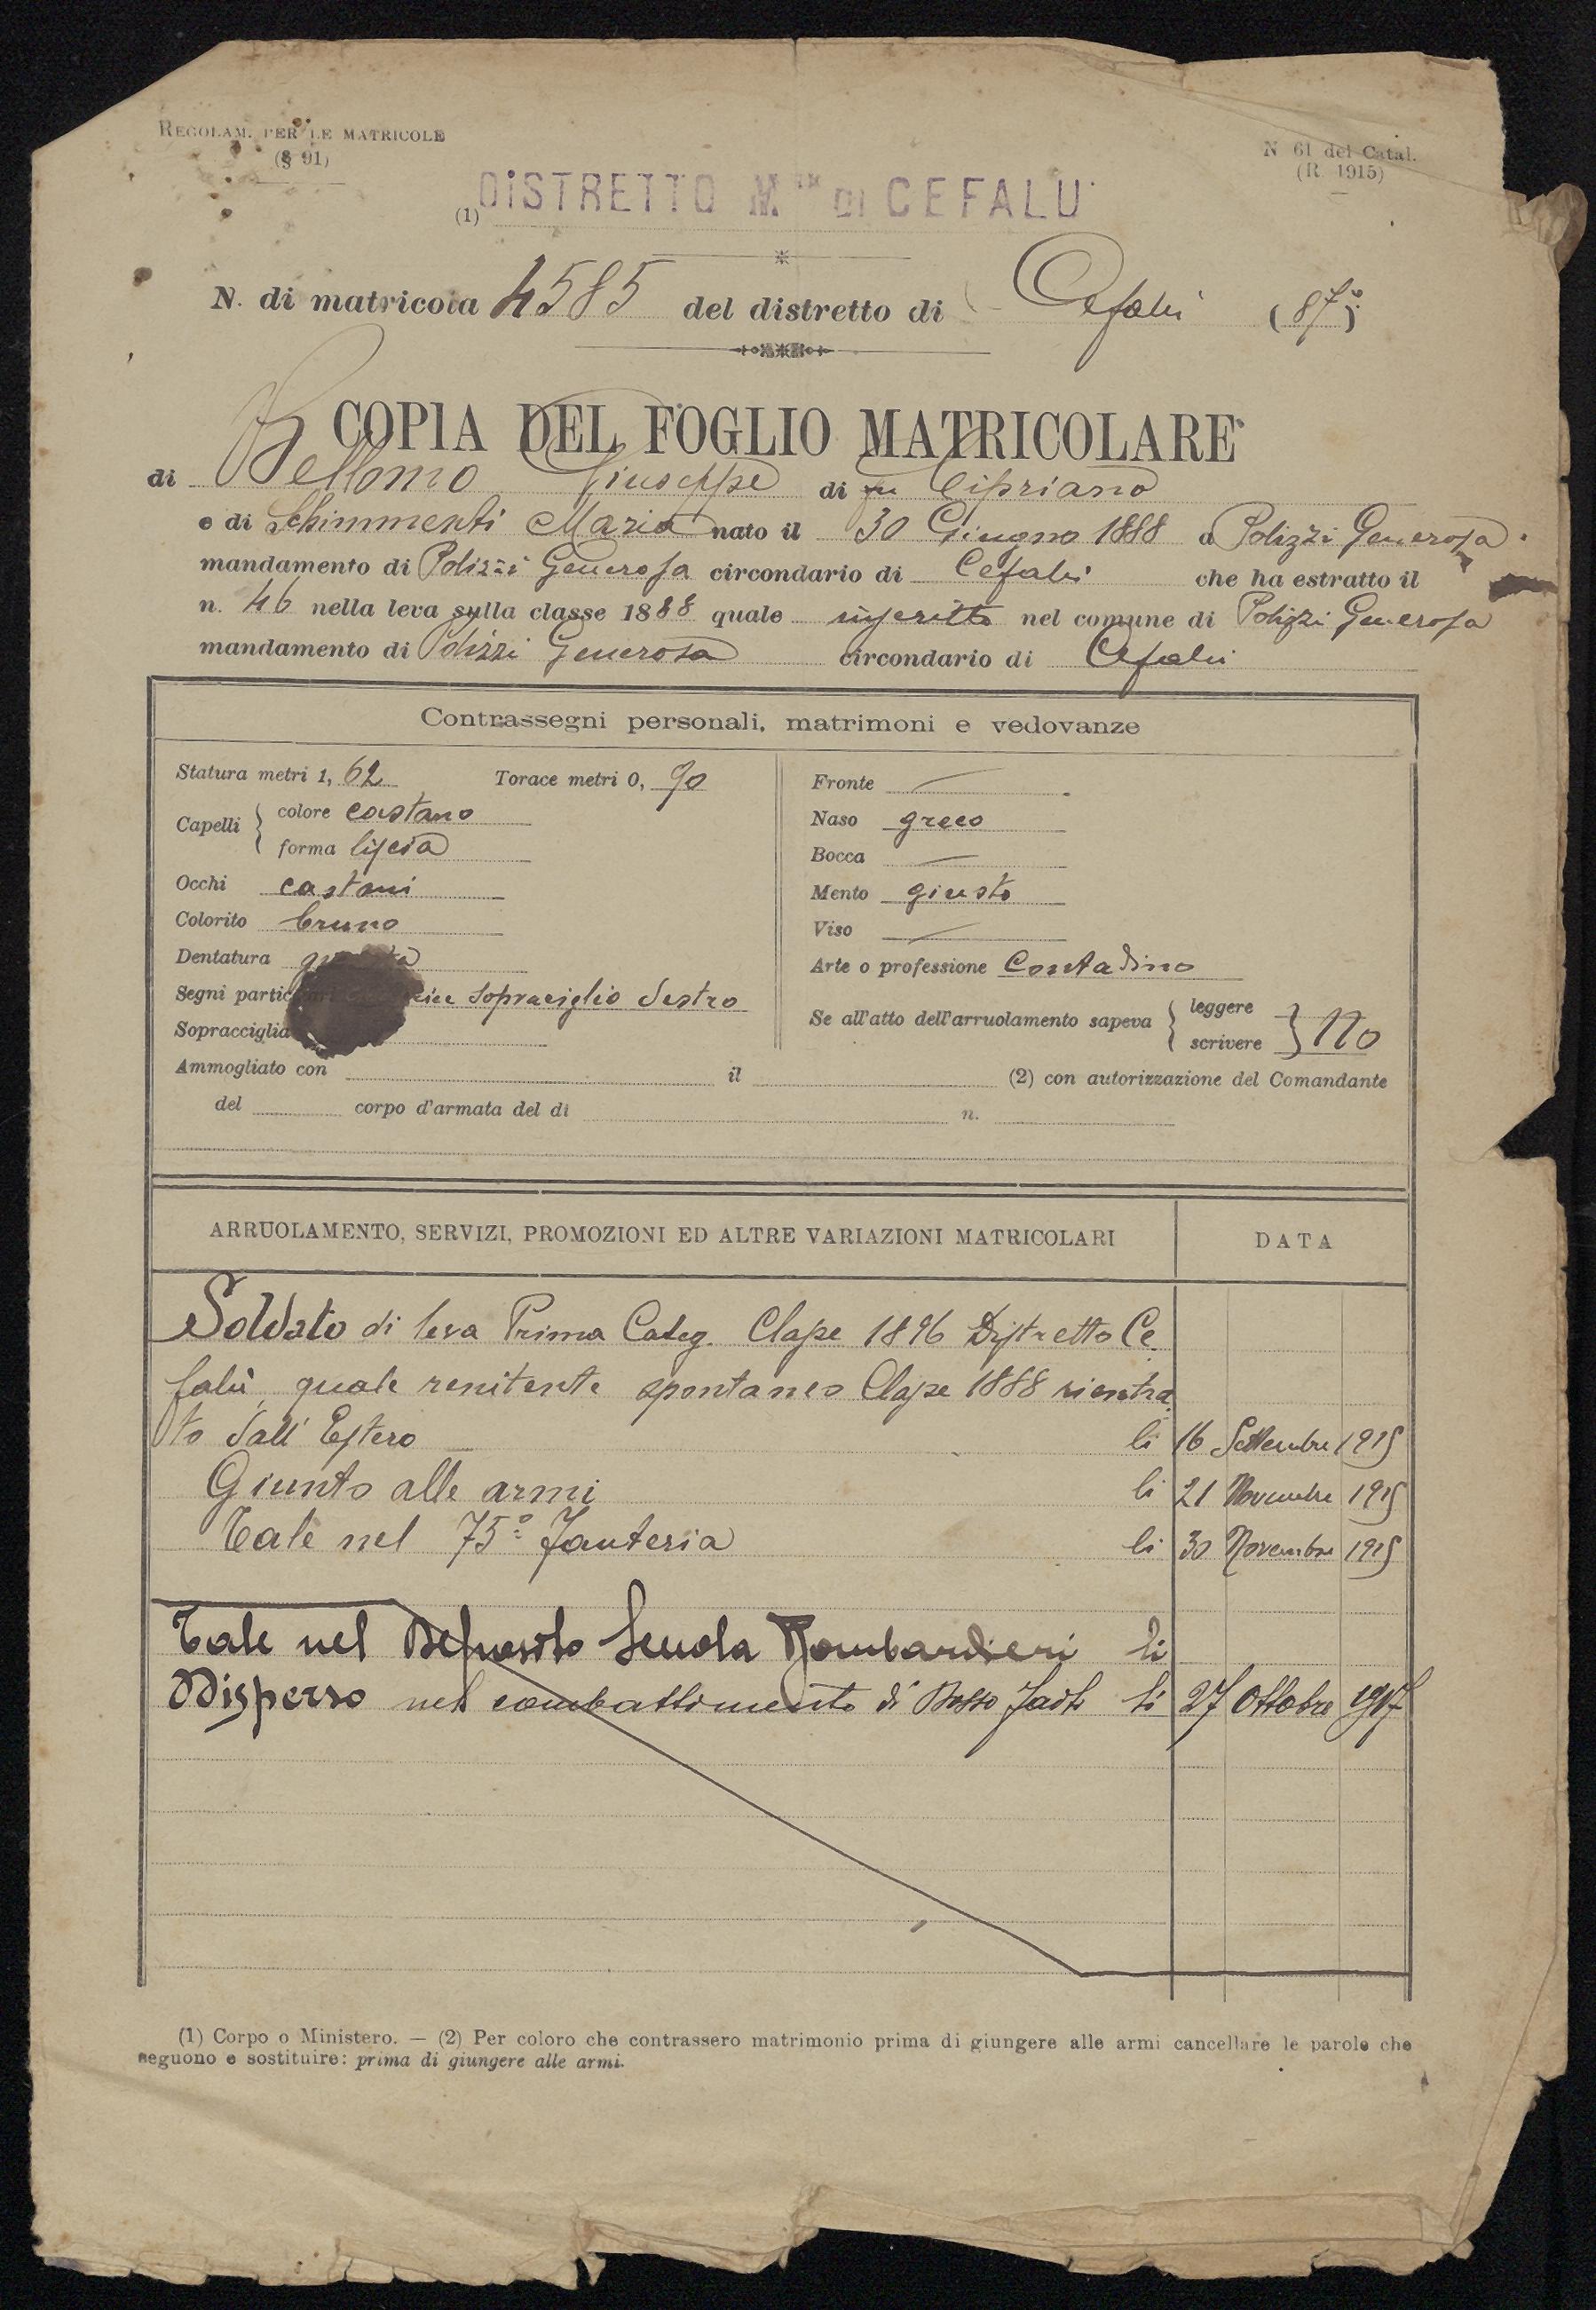 REGOLAM. PER LE MATRICOLE
(§ 91)
N 61 del Catal.
(R. 1915)
(1) DISTRETTO M DI CEFALU'
N. di matricola 4585 del distretto di Cefalù (87°)
COPIA DEL FOGLIO MATRICOLARE
di Bellomo Giuseppe di fu Cipriano
e di Schimmenti Maria nato il 30 Giugno 1888 a Polizzi Generosa
mandamento di Polizzi Generosa circondario di Cefalù che ha estratto il
n. 46 nella leva sulla classe 1888 quale inscritto nel comune di Polizzi Generosa
mandamento di Polizzi Generosa circondario di Cefalù
Contrassegni personali, matrimoni e vedovanze
Statura metri 1, 62 Torace metri 0, 90
Capelli colore castano
forma liscia
Occhi castani
Colorito bruno
Dentatura
Segni sopraciglio destro
Sopracciglia
Fronte
Naso greco
Bocca
Mento giusto
Viso
Arte o professione Contadino
Se all'atto dell'arruolamento sapeva leggere
scrivere No
Ammogliato con il (2) con autorizzazione del Comandante
del corpo d'armata del di n.
ARRUOLAMENTO, SERVIZI, PROMOZIONI ED ALTRE VARIAZIONI MATRICOLARI DATA
Soldato di leva Prima Categ. Classe 1896 Distretto Ce
falù, quale renitente spontaneo Classe 1888 rientra
to dall'Estero li 16 Settembre 1915
Giunto alle armi li 21 Novembre 1915
Tale nel 75° Fanteria li 30 Novembre 1915
Tale nel Deposito Scuola Bombardieri li
Disperso nel combattimento di Bosso Faiti li 27 Ottobre 1917
(1) Corpo o Ministero. — (2) Per coloro che contrassero matrimonio prima di giungere alle armi cancellare le parole che
seguono e sostituire: prima di giungere alle armi.